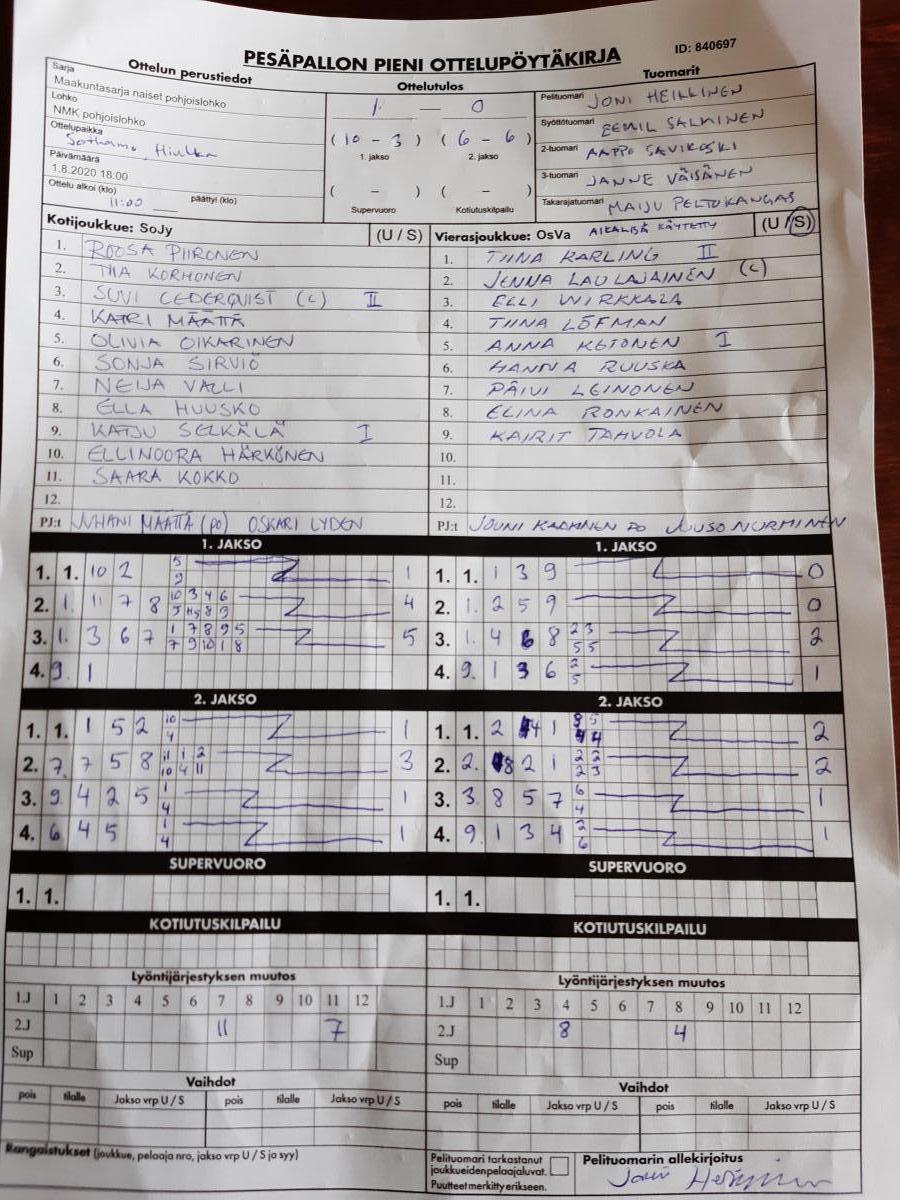 PESÄPALLON PIENI OTTELUPÖYTÄKIRJA
ID: 840697
Ottelun perustiedot
Ottelutulos
Tuomarit
Sarja
Maakuntasarja naiset pohjoislohko
Lohko
NMK pohjoislohko
Ottelupaikka
Sotkamo, Hiukka
Päivämäärä
1.8.2020 18:00
Ottelu alkoi (klo) 11:00 päättyi (klo)
1 — 0
( 10 - 3 ) ( 6 - 6 )
1. jakso 2. jakso
( - ) ( - )
Supervuoro Kotiutuskilpailu
Pelituomari JONI HEIKKINEN
Syöttötuomari EEMIL SALMINEN
2-tuomari AAPPO SAVIKOSKI
3-tuomari JANNE VÄISÄNEN
Takarajatuomari MAIJU PELTOKANGAS
Kotijoukkue: SoJy (U / S)
1. ROOSA PIIRONEN
2. TIIA KORHONEN
3. SUVI CEDERQVIST (C) II
4. KATRI MÄÄTTÄ
5. OLIVIA OIKARINEN
6. SONJA SIRVIÖ
7. NEIJA VALLI
8. ELLA HUUSKO
9. KATJU SELKÄLÄ I
10. ELLINOORA HÄRKÖNEN
11. SAARA KOKKO
12.
PJ:t JUHANI MÄÄTTÄ (PO) OSKARI LYDEN
Vierasjoukkue: OsVa AIKALISÄ KÄYTETTY (U / S)
1. TIINA KARLING II
2. JENNA LAULAJAINEN (C)
3. ELLI WIRKKALA
4. TIINA LÖFMAN
5. ANNA KETONEN I
6. HANNA RUUSKA
7. PÄIVI LEINONEN
8. ELINA RONKAINEN
9. KAIRIT TAHVOLA
10.
11.
12.
PJ:t JOUNI PO JUUSO NURMINEN
1. JAKSO
1. 1. 10 2 5 9 1
2. 1. 11 7 8 10 3 4 6 4
3. 1. 3 6 7 1 7 8 9 5 7 9 10 1 8 5
4. 9. 1
1. JAKSO
1. 1. 1 3 9 0
2. 1. 2 5 9 0
3. 1. 4 6 8 2 3 5 5 2
4. 9. 1 3 6 2 5 1
2. JAKSO
1. 1. 1 5 2 10 4 1
2. 7. 7 5 8 11 1 2 10 4 11 3
3. 9. 4 2 5 1 4 1
4. 6 4 5 1 4 1
2. JAKSO
1. 1. 2 4 1 2
2. 2. 8 2 1 2 2 2 3 2
3. 3. 8 5 7 6 4 1
4. 9. 1 3 4 2 6 1
SUPERVUORO
1. 1.
SUPERVUORO
1. 1.
KOTIUTUSKILPAILU
KOTIUTUSKILPAILU
Lyöntijärjestyksen muutos
1.J 1 2 3 4 5 6 7 8 9 10 11 12
2.J 11 7
Sup
Lyöntijärjestyksen muutos
1.J 1 2 3 4 5 6 7 8 9 10 11 12
2.J 8 4
Sup
Vaihdot
pois tilalle Jakso vrp U / S pois tilalle Jakso vrp U / S
Vaihdot
pois tilalle Jakso vrp U / S pois tilalle Jakso vrp U / S
Rangaistukset (joukkue, pelaaja nro, jakso vrp U / S ja syy)
Pelituomari tarkastanut
joukkueiden pelaajaluvat.
Puutteet merkitty erikseen.
Pelituomarin allekirjoitus